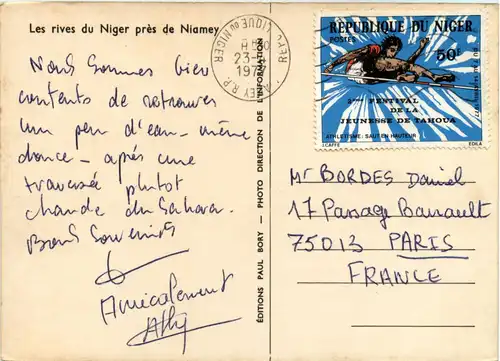 Les rives du Niger près de Niamey
Nous sommes bien
contents de retrouver
un peu d'eau - même
douce - après une
traversée plutot
chaude du Sahara.
Bons Souvenirs
Amicalement
ÉDITIONS PAUL BORY — PHOTO DIRECTION DE L'INFORMATION
NIAMEY R.P.
23-
197
RÉPUBLIQUE DU NIGER
POSTES
50F
2ème FESTIVAL
DE LA
JEUNESSE DE TAHOUA
ATHLETISME: SAUT EN HAUTEUR
J.CAFFE
EDILA
Mr BORDES Daniel
17 Passage Bourrault
75013 PARIS
FRANCE